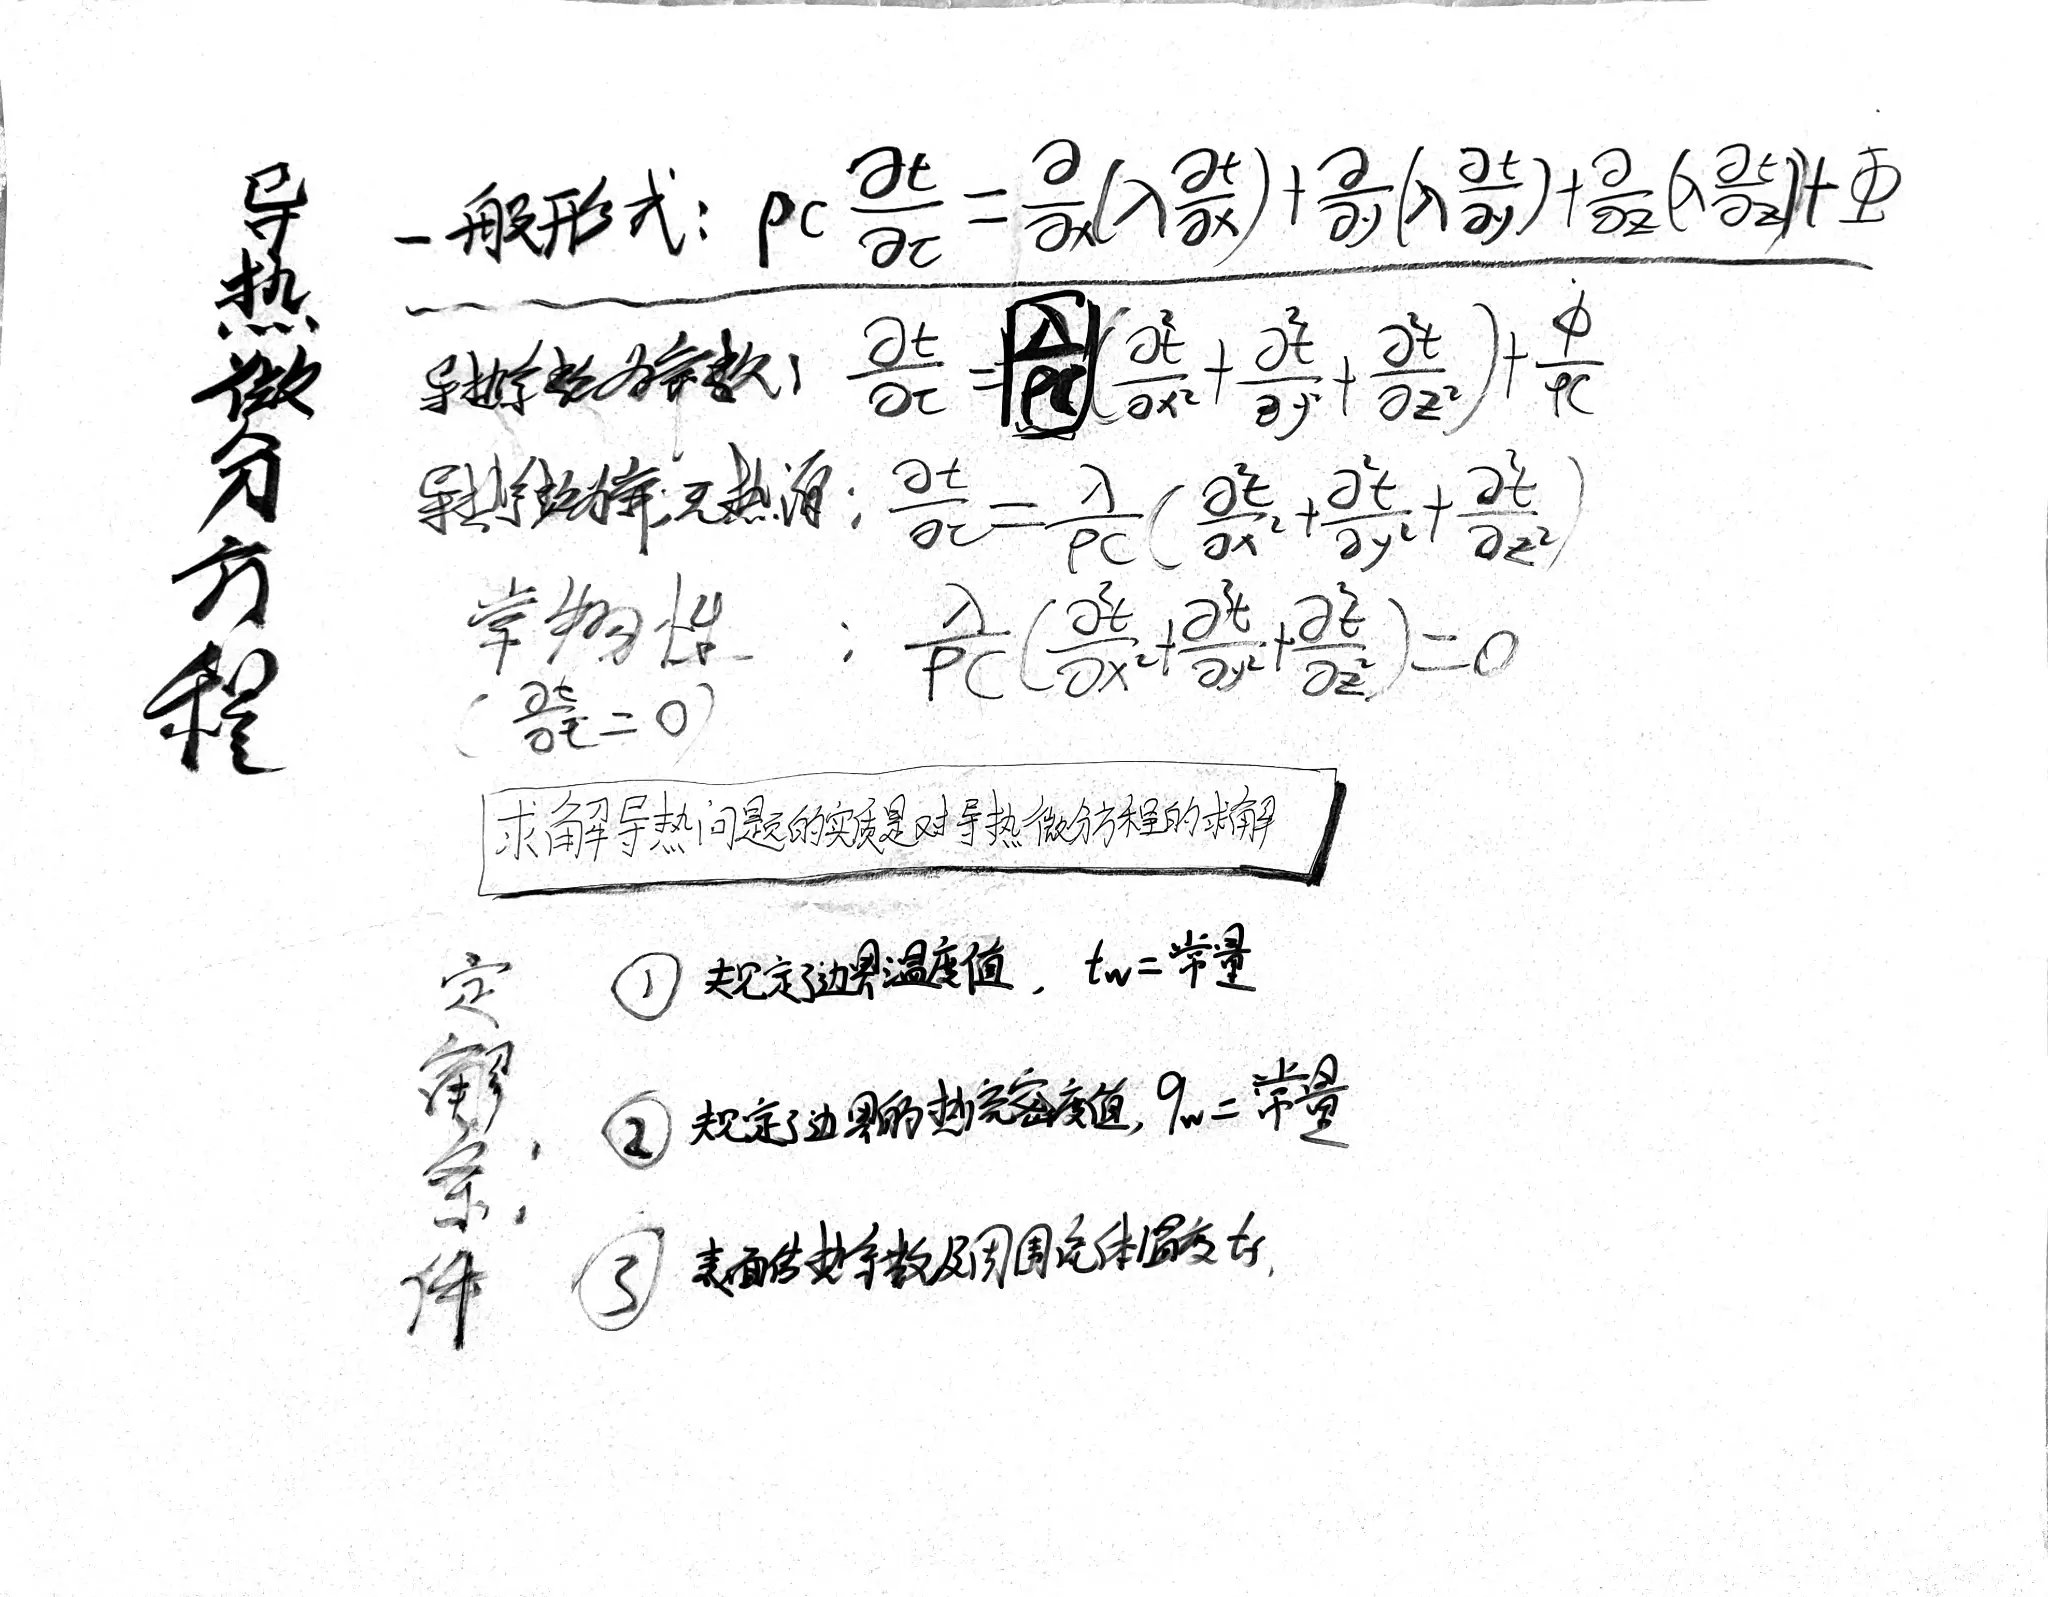 导热微分方程
一般形式: ρc ∂t/∂τ = ∂/∂x(λ ∂t/∂x) + ∂/∂y(λ ∂t/∂y) + ∂/∂z(λ ∂t/∂z) + Φ
导热系数为常数: ∂t/∂τ = λ/ρc (∂²t/∂x² + ∂²t/∂y² + ∂²t/∂z²) + Φ̇/ρc
导热系数为常,无热源: ∂t/∂τ = λ/ρc (∂²t/∂x² + ∂²t/∂y² + ∂²t/∂z²)
常物性 : λ/ρc (∂²t/∂x² + ∂²t/∂y² + ∂²t/∂z²) = 0
(∂t/∂τ = 0)
求解导热问题的实质是对导热微分方程的求解
定解条件
① 规定了边界温度值, tw = 常量
② 规定了边界的热流密度值, qw = 常量
③ 表面传热系数及周围流体温度 tf,